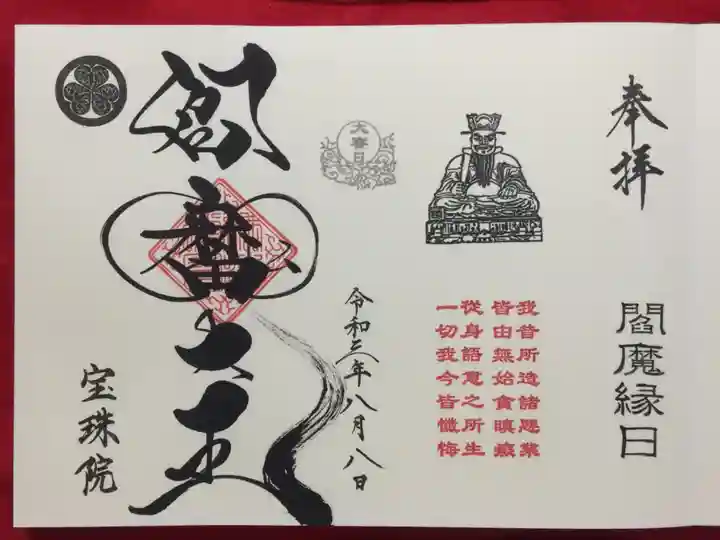 奉拝
閻魔縁日
我昔所造諸悪業
皆由無始貪瞋癡
從身語意之所生
一切我今皆懺悔
大賽日
令和三年八月八日
閻魔大王
宝珠院